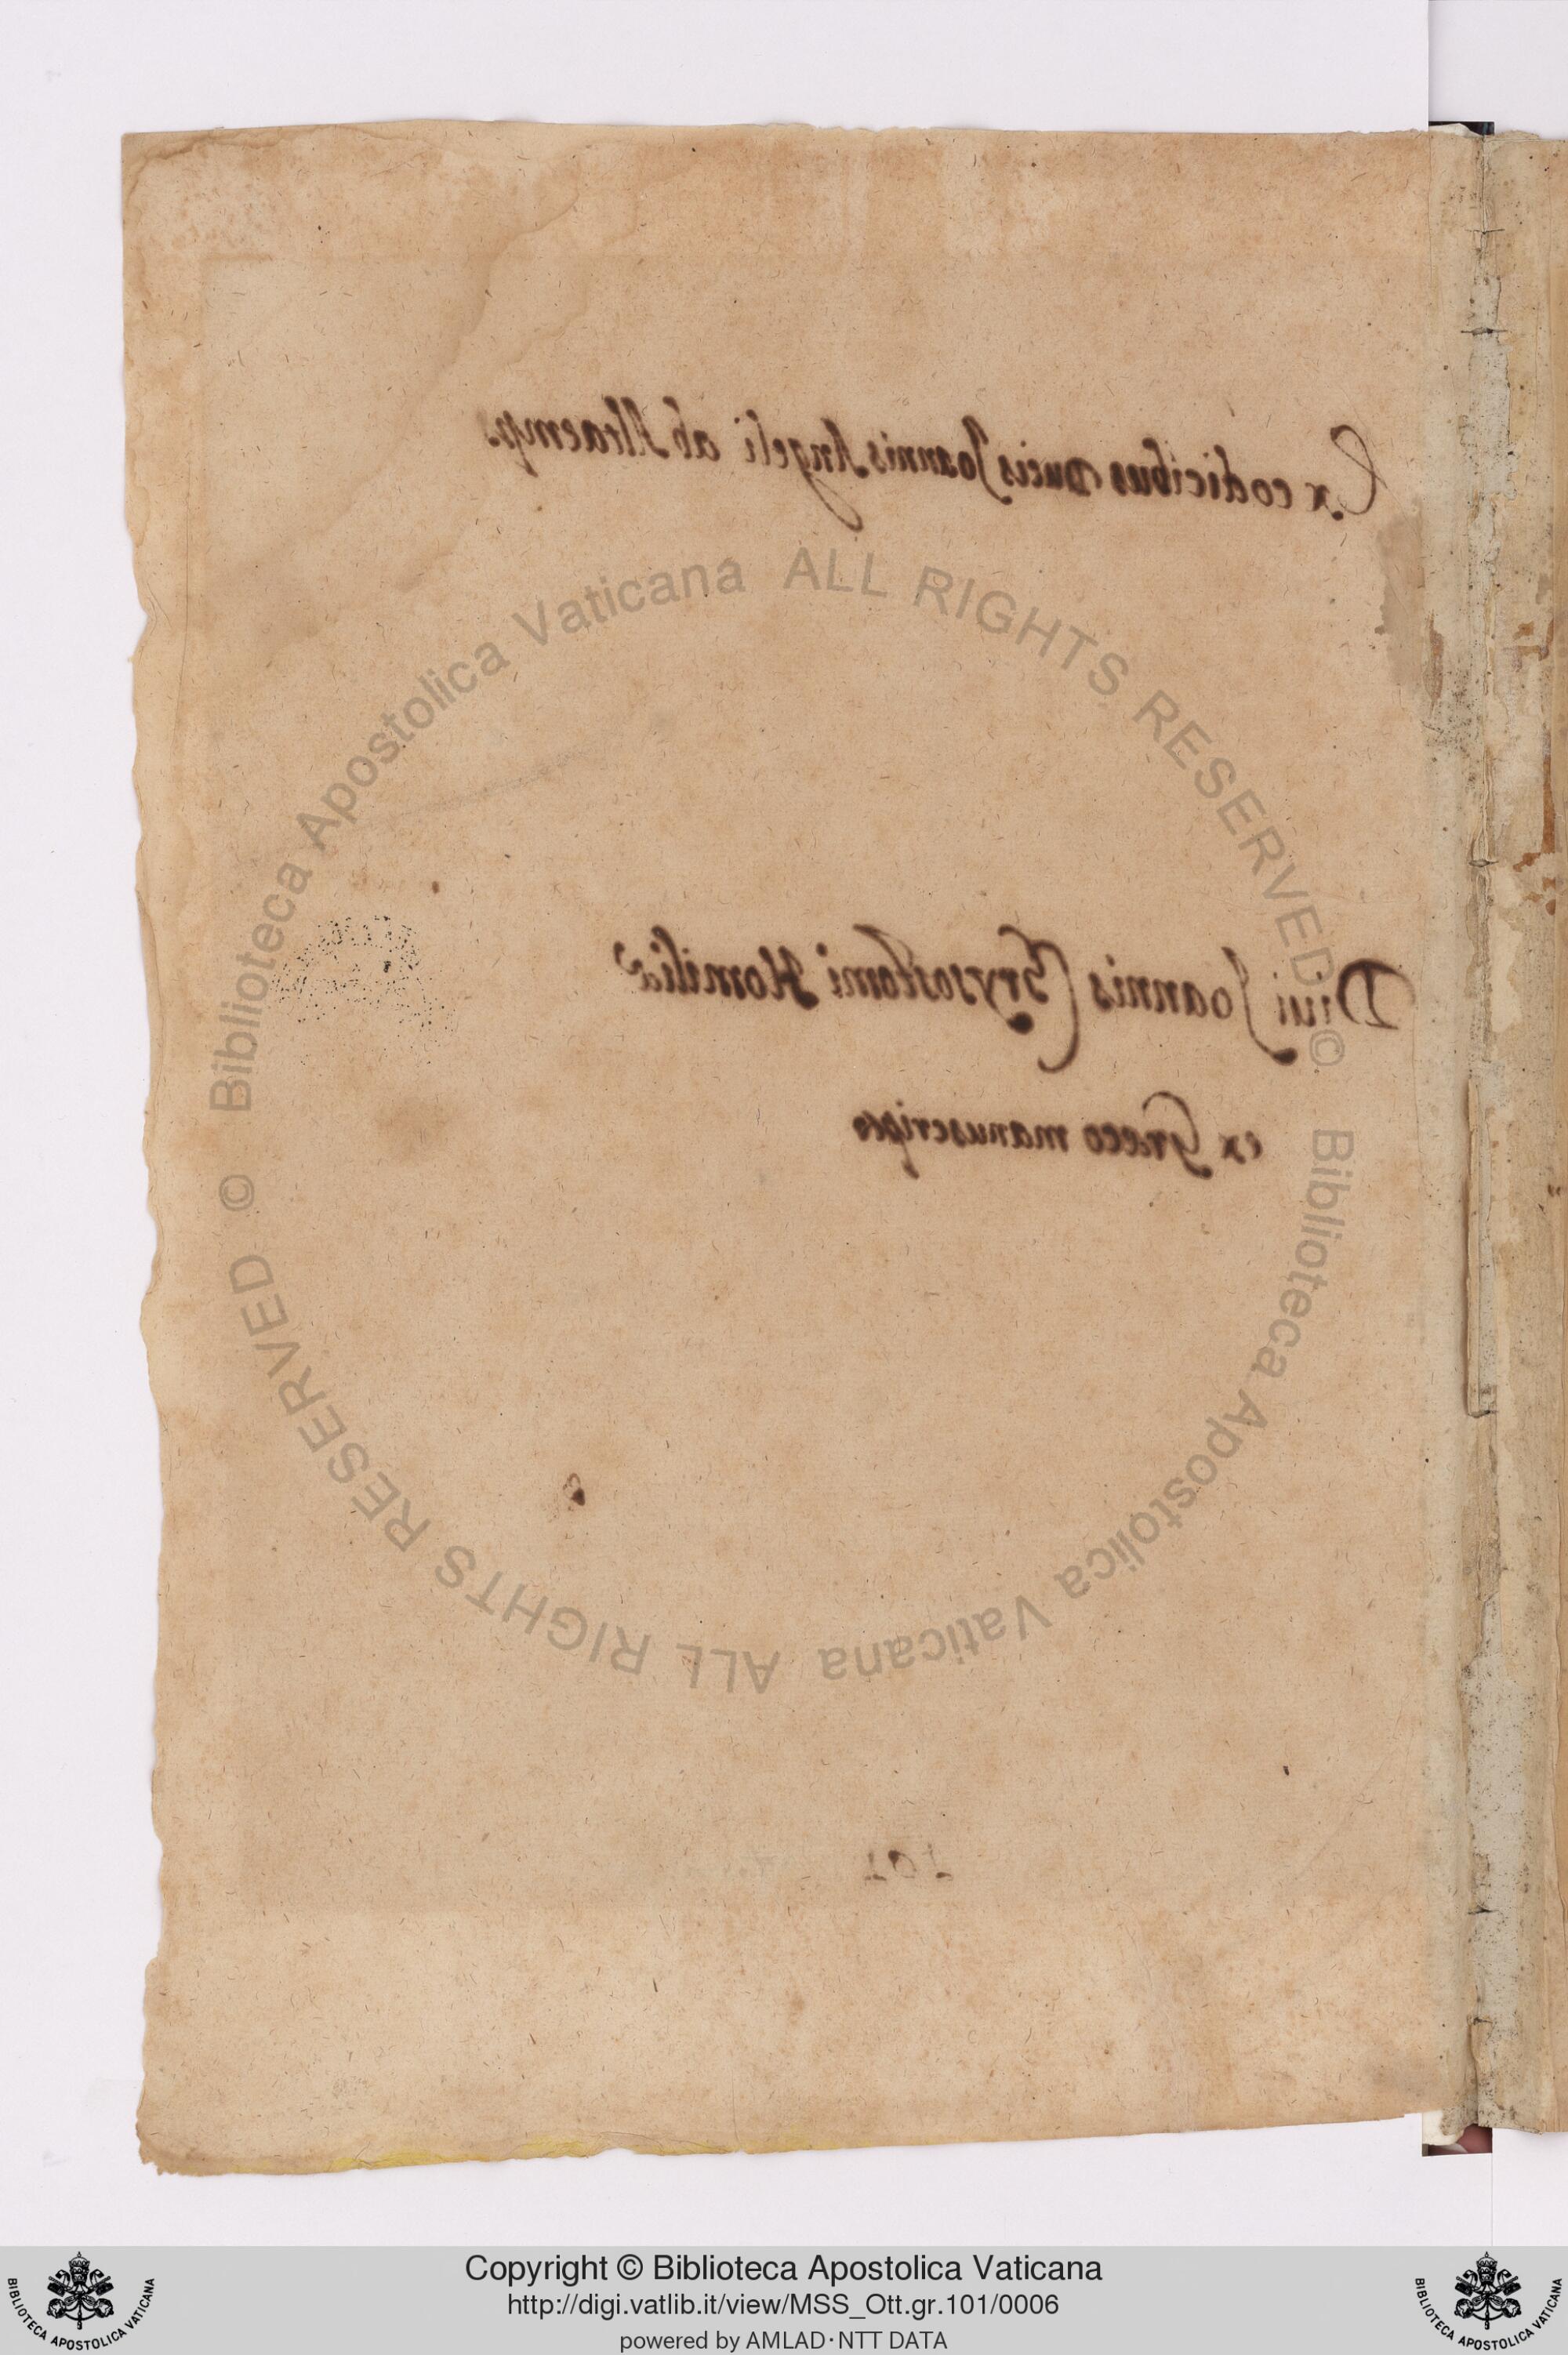 Ex codicibus Ducis Joannis Angeli ab Altaemps
Diui Joannis Chrysostomi Homiliæ
ex Græco manuscripto
101
Biblioteca Apostolica Vaticana ALL RIGHTS RESERVED ©
Biblioteca Apostolica Vaticana ALL RIGHTS RESERVED ©
BIBLIOTECA APOSTOLICA VATICANA
Copyright © Biblioteca Apostolica Vaticana
http://digi.vatlib.it/view/MSS_Ott.gr.101/0006
powered by AMLAD·NTT DATA
BIBLIOTECA APOSTOLICA VATICANA